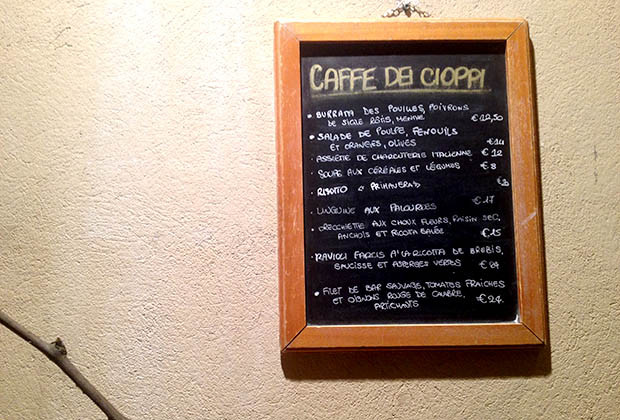 CAFFE DEI CIOPPI
• BURRATA DES POUILLES, POIVRONS
DE SICILE RÔTIS, MENTHE €12,50
• SALADE DE POULPE, FENOUILS
ET ORANGES, OLIVES €14
• ASSIETTE DE CHARCUTERIE ITALIENNE €12
• SOUPE AUX CÉRÉALES ET LÉGUMES €8
• RISOTTO PRIMAVERA
• LINGUINE AUX PALOURDES €17
• ORECCHIETTE AUX CHOUX FLEURS, RAISIN SEC,
ANCHOIS ET RICOTTA SALÉE €15
• RAVIOLI FARCIS A LA RICOTTA DE BREBIS,
SAUCISSE ET ASPERGES VERTES €24
• FILET DE BAR SAUVAGE, TOMATES FRAICHES
ET OIGNONS ROUGE DE CALABRE, €24
ARTICHAUTS